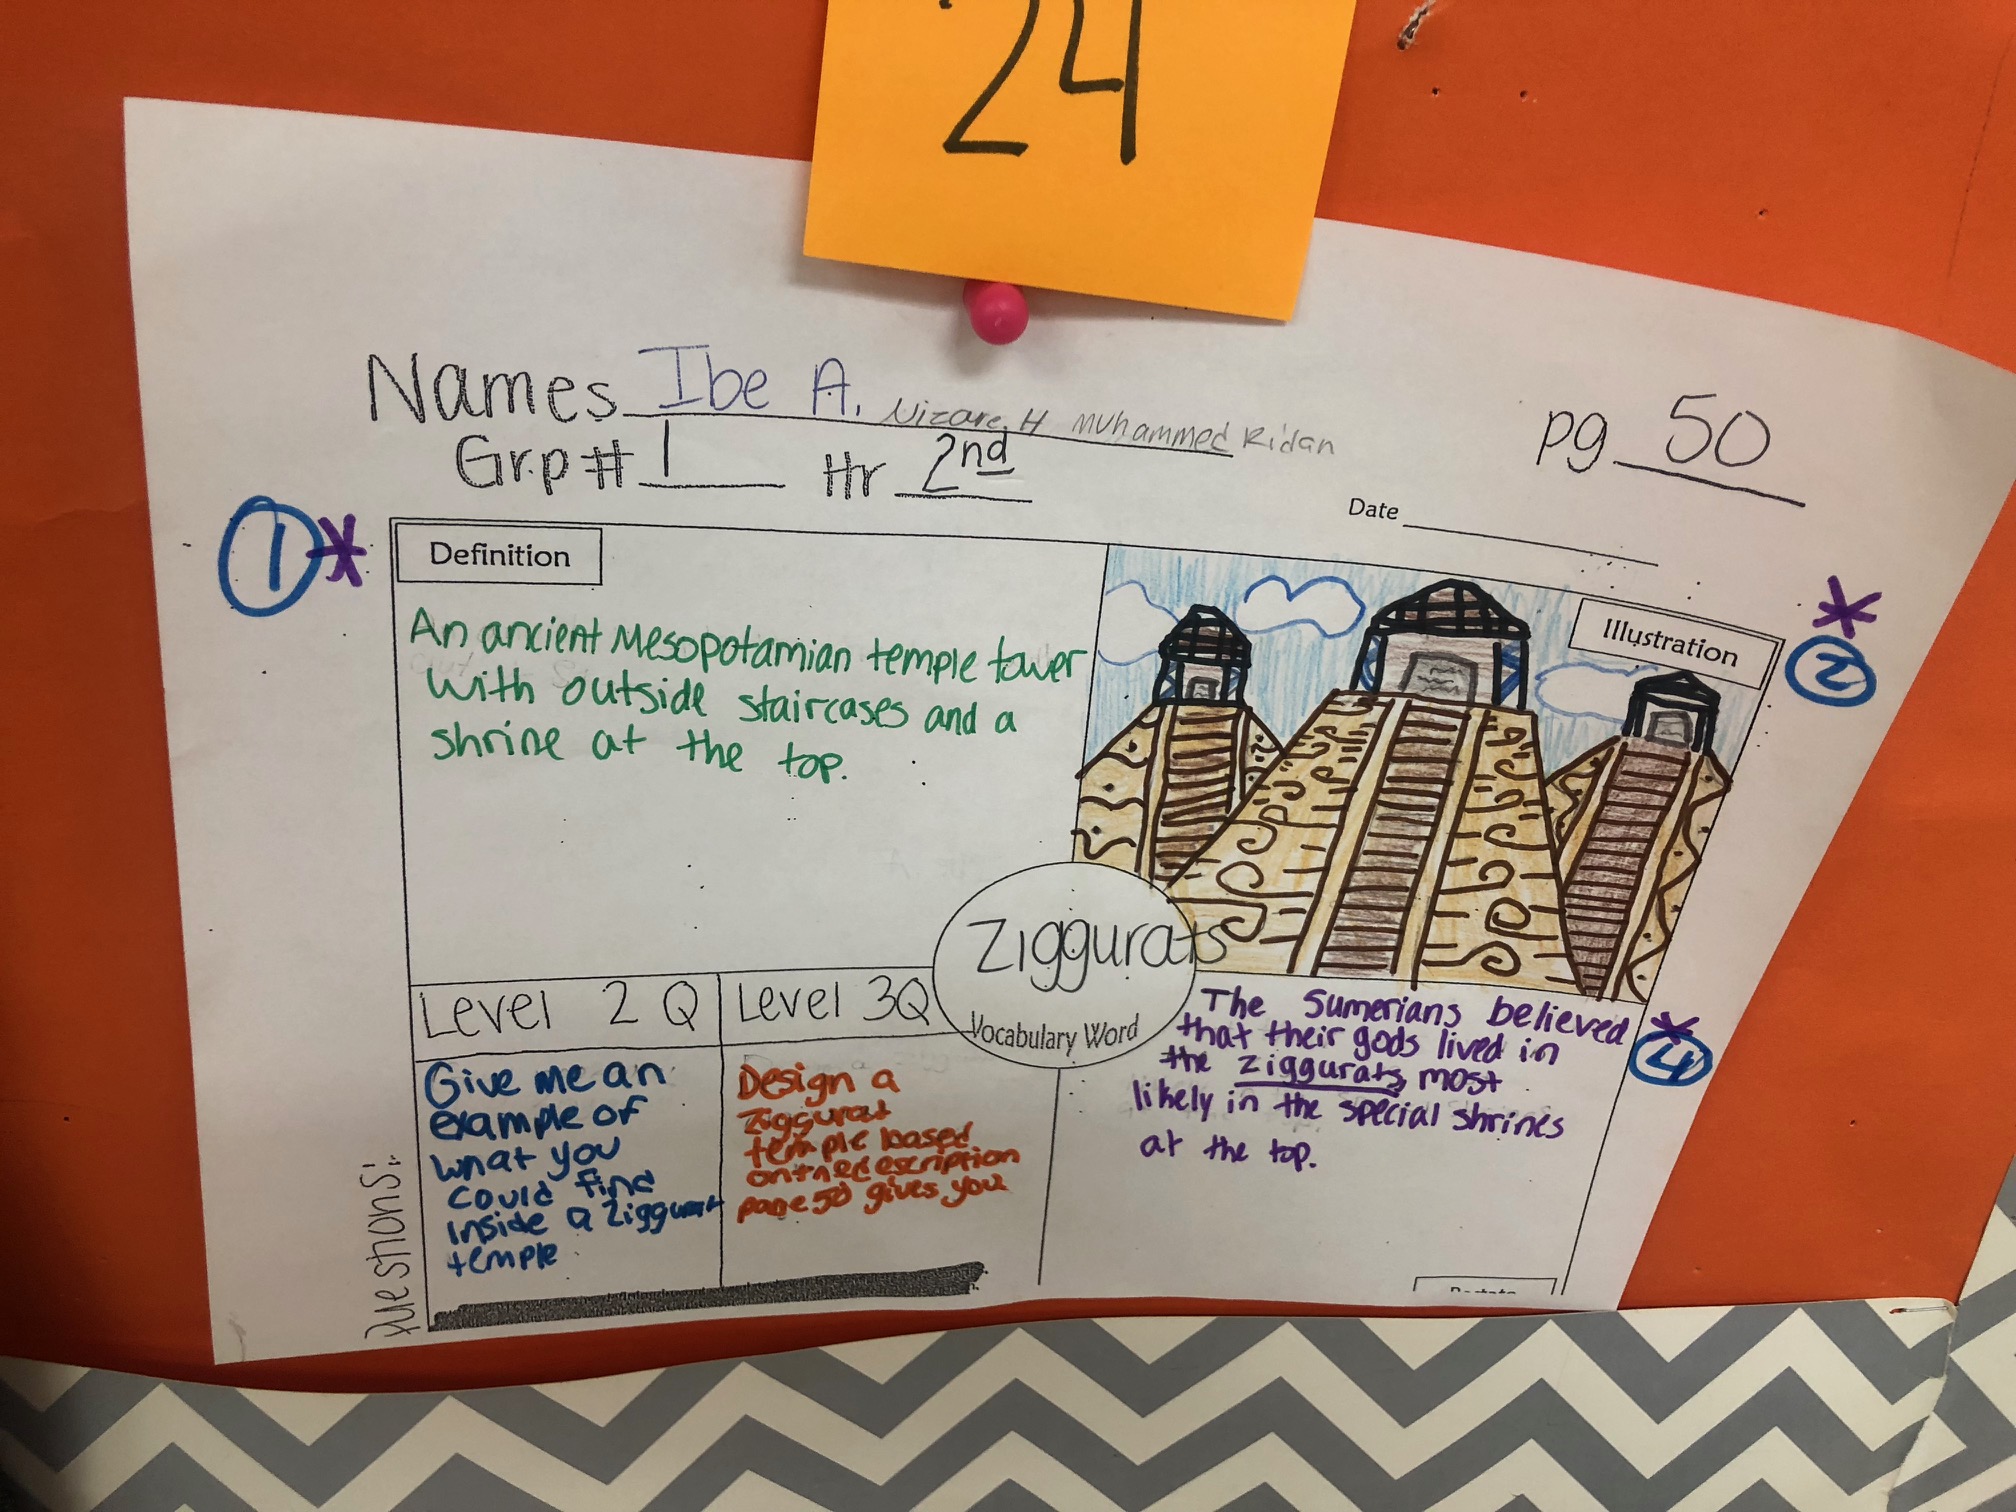 24
Names Ibe A. Nizare. H Muhammed Ridan
pg 50
Grp # 1 Hr 2nd
Date
1
Definition
An ancient Mesopotamian temple tower
with outside staircases and a
shrine at the top.
Illustration
2
Ziggurats
Vocabulary Word
Questions:
Level 2 Q
Give me an
example of
what you
could find
inside a Ziggurat
temple
Level 3Q
Design a
Ziggurat
temple based
on the description
page 50 gives you
The Sumerians believed
that their gods lived in
the ziggurats, most
likely in the special shrines
at the top.
4